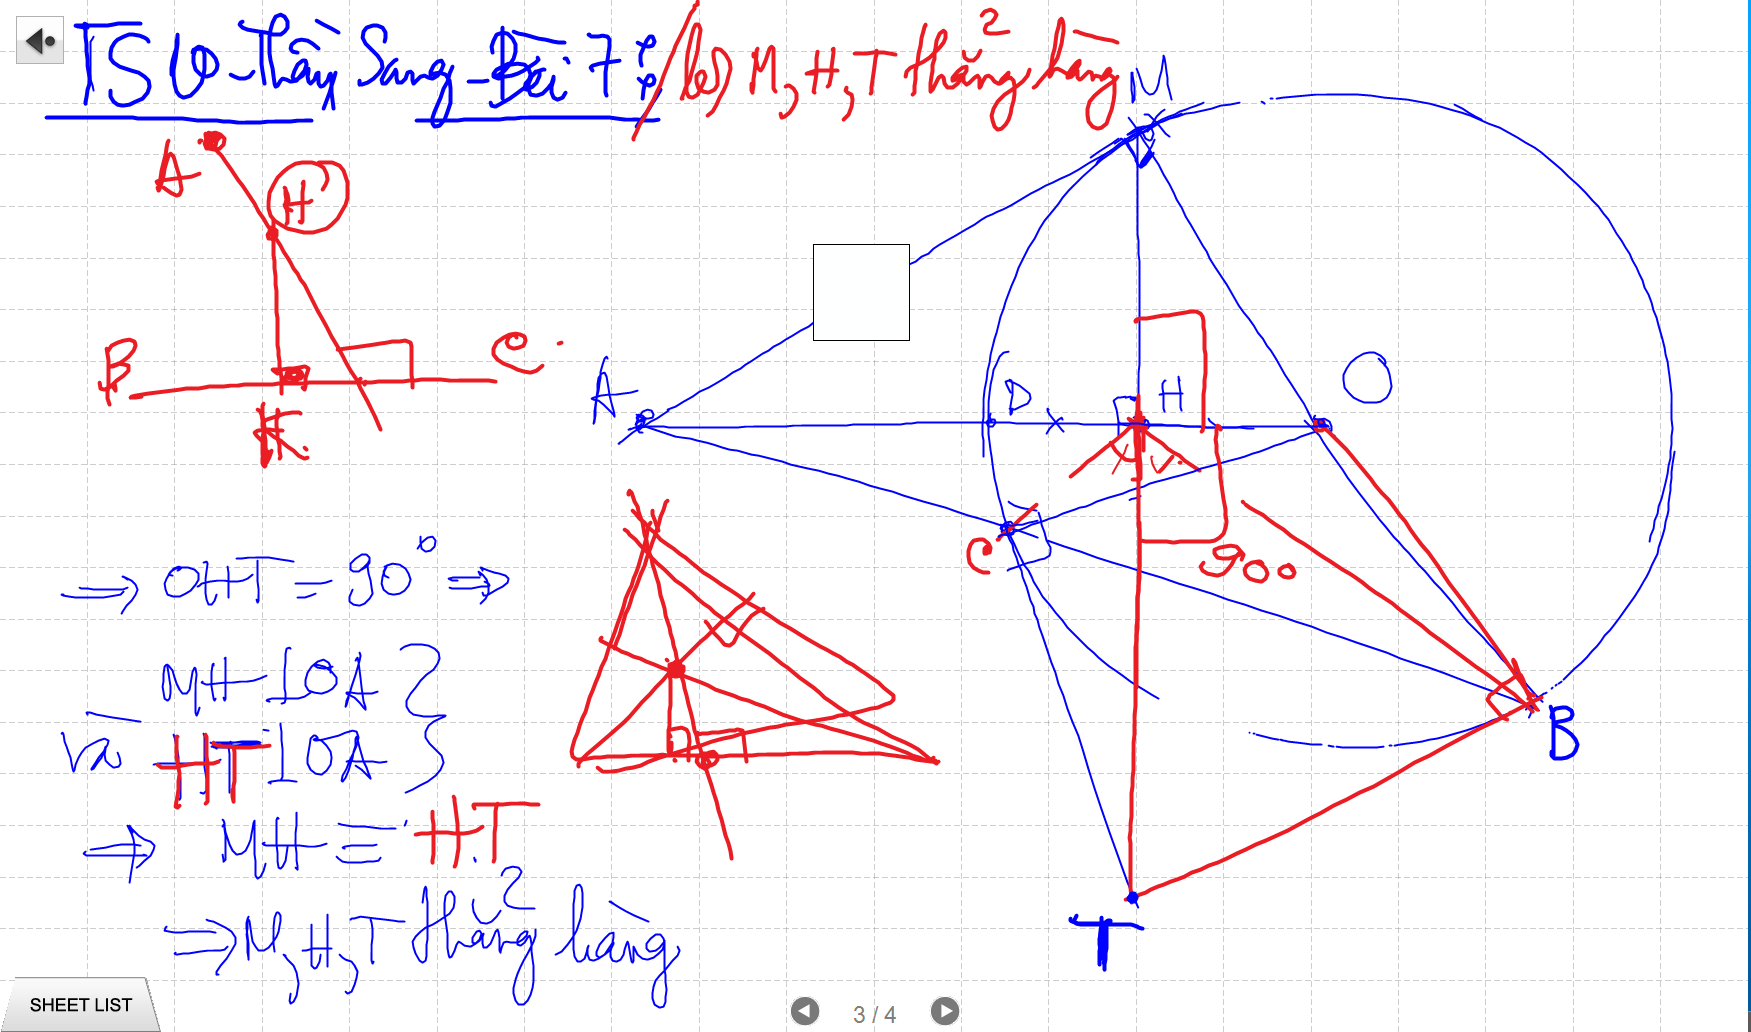 TS10 - Thầy Sang - Bài 7:
b) M, H, T thẳng hàng
A
H
B
C
K
M
A
D
H
O
C
90°
B
T
⇒ OHT = 90° ⇒
MH ⊥ OA }
và HT ⊥ OA }
⇒ MH ≡ HT
⇒ M, H, T thẳng hàng
SHEET LIST
3 / 4